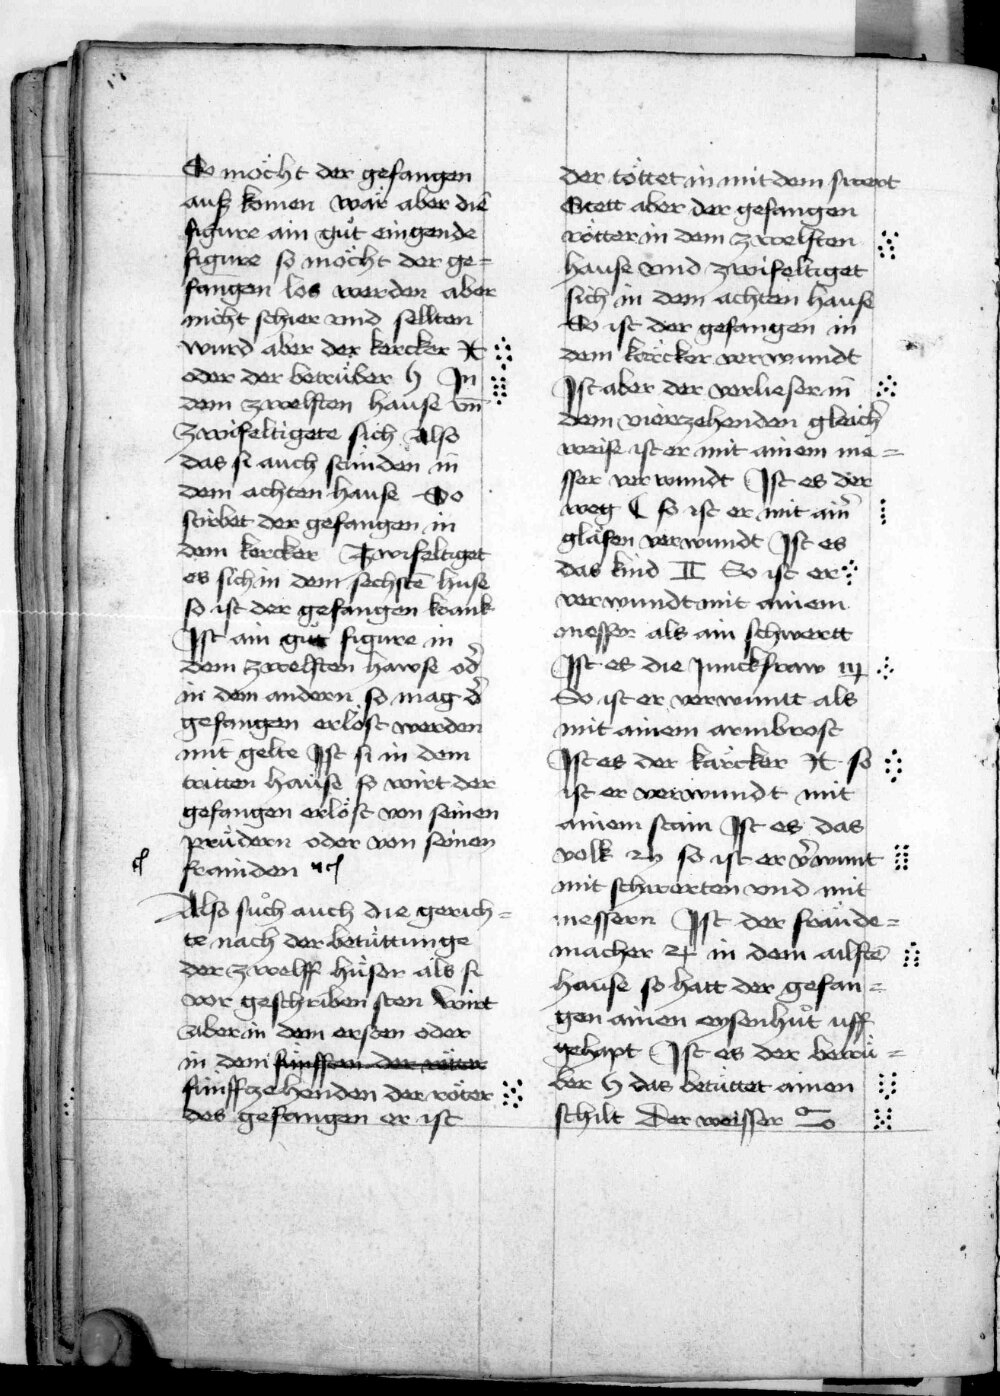 So möcht der gefangen
auß komen wär aber die
figure ain gůt eingende
figure so möcht der ge=
fangen los werden aber
nicht schier vnd sellten
wurd aber der kercker ♑
oder der betrüber ♄ Jn
dem zwelften hause vn̄
zwifeltigete sich also
das si auch stünden in
dem achten hause So
stirbet der gefangen in
dem kercker Zwifeltiget
es sich in dem sechstē huse
so ist der gefangen krank
Jst ain gůt figure in
dem zwelften hawse od̓
in dem andern so mag d̓
gefangen erlöst werden
mit gelte Jst si in dem
tritten hause so wirt der
gefangen erlöst von seinen
prüdern oder von seinen
frainden
Also sůch auch die gerich=
te nach der betüttunge
der zwelff hüser als si
vor geschriben sten wirt
aber in dem ersten oder
in dem fünfften der röter
fünffzehenden der röter
des gefangen er ist
der töttet in mit dem swert
Stett aber der gefangen
rötter in dem zwelften
hause vnd zwifeltiget
sich in dem achten hause
So ist der gefangen in
dem kärcker verwundt
Jst aber der verlieser in
dem vierzehenden gleich̓
weise ist er mit ainem me=
sser verwundt Jst es der
weg ☾ so ist er mit ain̓
gläfen verwundt Jst es
das kind ♊ So ist er
verwundt mit ainem
messer als ain schwertt
Jst es die Junckfraw ♍
So ist er verwuntt als
mit ainem armbrost
Jst es der kärcker ♑ so
ist er verwundt mit
ainem stain Jst es das
volk so ist er v̓wunt
mit schwerten vnd mit
messern Jst der fräude=
macher ♃ in dem ailftē
hause so hatt der gefan=
gen ainen eysenhůt uff
gehapt Jst es der betrü=
ber ♄ das betüttet ainen
schilt Der weisser